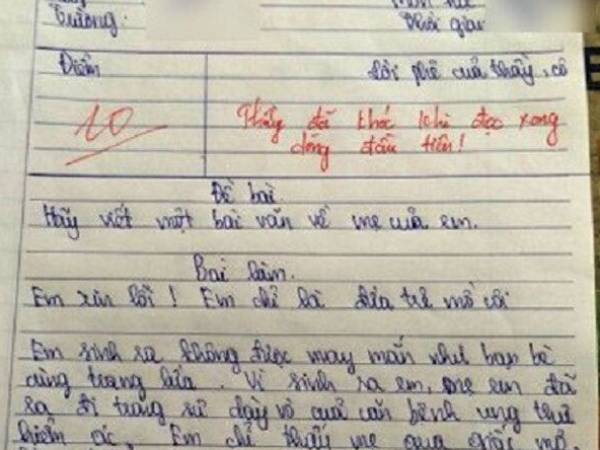 Trường:
Thời gian
Điểm
Lời phê của thầy, cô
10
Thầy đã khóc khi đọc xong
dòng đầu tiên!
Đề bài
Hãy viết một bài văn về mẹ của em.
Bài làm.
Em xin lỗi! Em chỉ là đứa trẻ mồ côi
Em sinh ra không được may mắn như bạn bè
cùng trang lứa. Vì sinh ra em, mẹ em đã
ra đi trong sự dày vò của căn bệnh ung thư
hiểm ác. Em chỉ thấy mẹ qua giấc mơ,